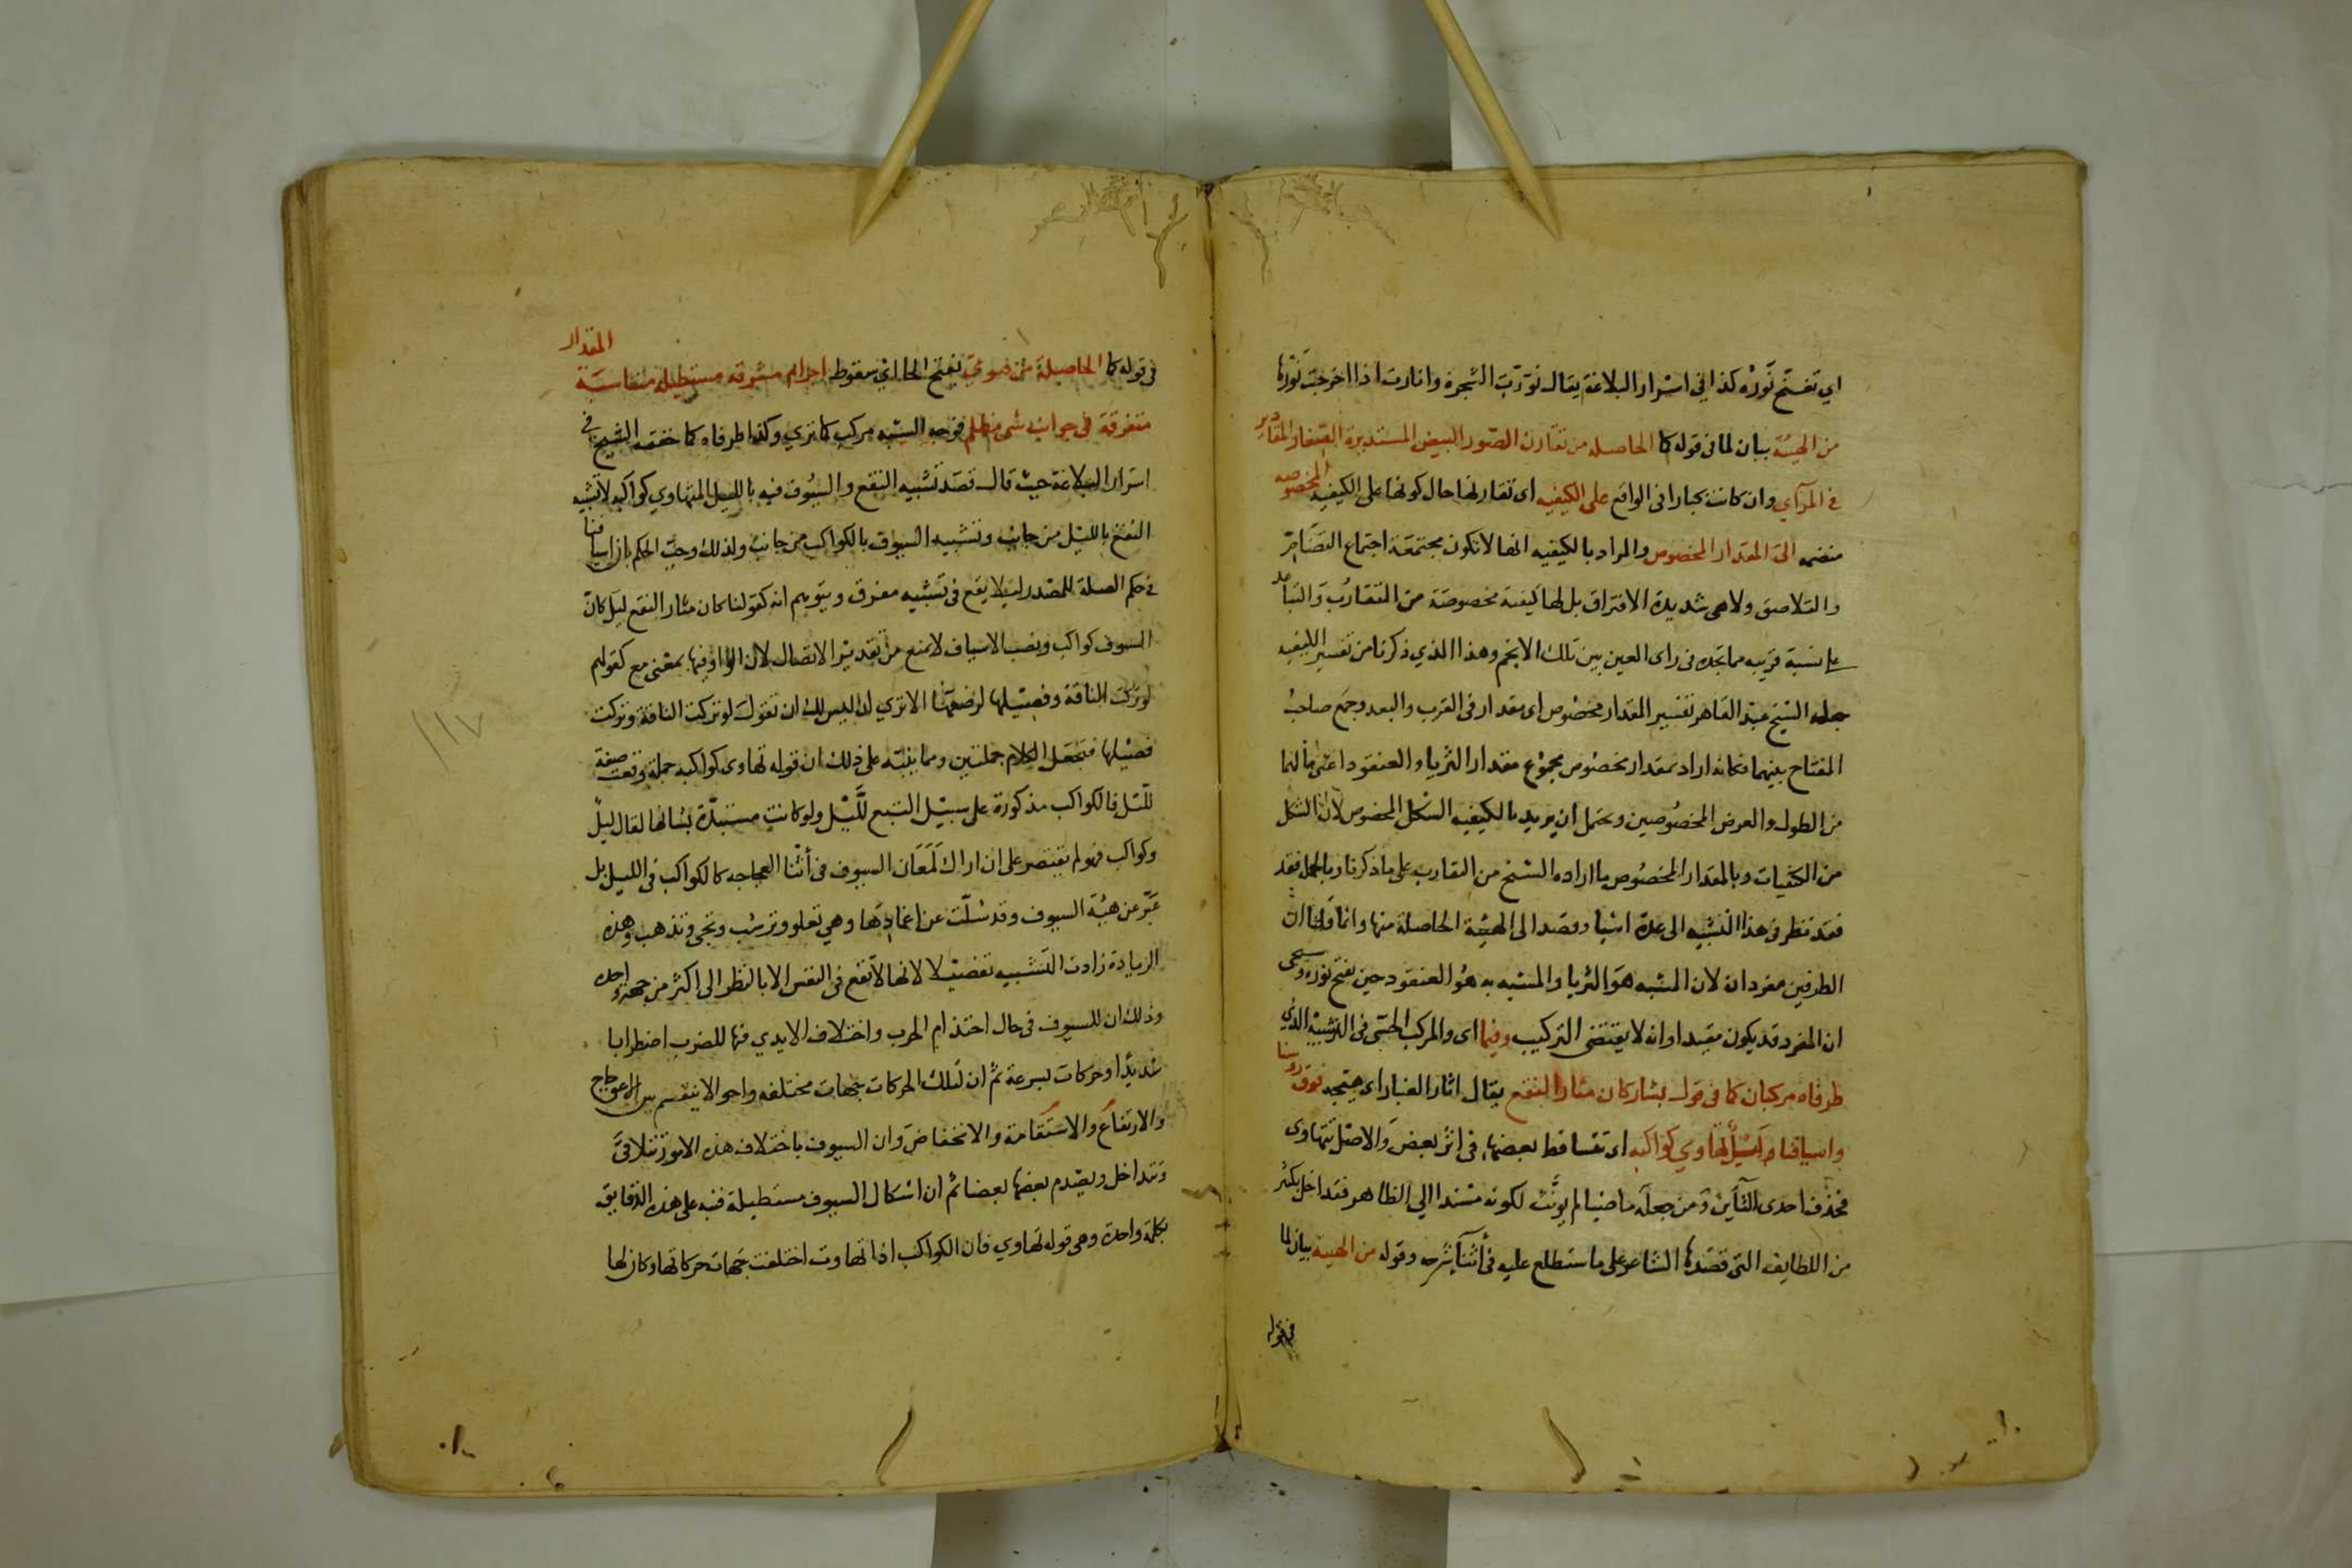 اي تفتح نوره كذا في اسرار البلاغة يقال نورت الشجرة وانارت اذا اخرجت نورها
من الهيئة بيان لما في قوله كما الحاصله من تقارن الصور البيض المستديرة الصغار المقادير
في المرآي وان كانت كبارا في الواقع على الكيفيه اى تقارنها حال كونها على الكيفيه المخصوصه
منضمه الى المقدار المخصوص والمراد بالكيفيه انها لا تكون مجتمعة اجتماع التضام
والتلاصق ولا هي شديدة الافتراق بل لها كيفية مخصوصة من التقارب والتباعد
على نسبة قريبه مما نجده في راى العين بين تلك الانجم وهذا الذي ذكرنا من تفسير الكيفيه
جعله الشيخ عبد القاهر تفسير المقدار مخصوص اى مقدار في القرب والبعد وجمع صاحب
المفتاح بينهما فكانه اراد بمقدار مخصوص مجموع مقدار الثريا والعنقود اعنى مالهما
من الطول والعرض المخصوصين ويحتمل ان يريد بالكيفيه الشكل المخصوص لان الشكل
من الكيفيات وبالمقدار المخصوص ما اراده الشيخ من التقارب على ما ذكرنا وبالجمله فقد
فقد نظر في هذا التشبيه الى عدة اشيا وقصد الى الهيئة الحاصلة منها وانما قلنا ان
الطرفين مفردان لان المشبه هو الثريا والمشبه به هو العنقود حين تفتح نوره وسيجى
ان المفرد قد يكون مقيدا وانه لا يقتضى التركيب وفيما اى والمركب الحسى في التشبيه الذي
طرفاه مركبان كما في قول بشار كان مثار النقع يقال اثار الغبار اى هيجه فوق روسنا
واسيافنا ليل تهاوي كواكبه اى تتساقط بعضها في اثر بعض والاصل تتهاوى
فحذفت احدى التآين ومن جعله ماضيا لم يونث لكونه مسندا الي الظاهر فقد اخل بكثير
من اللطايف التي قصدها الشاعر على ما ستطلع عليه في اثنآ شرحه وقوله من الهيية بيان لما
في قوله
في قوله كما الحاصلة من هوي بفتح الها اي سقوط اجرام مشرقه مستطيلة متناسبة المقدار
متفرقة في جوانب شى مظلم فوجه الشبه مركب كما تري وكذا طرفاه كما حققه الشيخ في
اسرار البلاغة حيث قال قصد تشبيه النقع والسيوف فيه بالليل المتهاوي كواكبه لا تشبيه
النقع بالليل من جانب وتشبيه السيوف بالكواكب من جانب ولذلك وجب الحكم بان اسيافنا
في حكم الصلة للمصدر ليلا يقع في تشبيه مفرق ويتوهم انه كقولنا كان مثار النقع ليل كان
السيوف كواكب ونصب الاسياف لا يمنع من تقدير الاتصال لان الواو فيها بمعنى مع كقولهم
لو تركت الناقة وفصيلها لرضعها الا تري ان ليس لك ان تقول لو تركت الناقة وتركت
فصيلها فتجعل الكلام جملتين ومما ينبه على ذلك ان قوله تهاوى كواكبه جملة وقعت صفة
لليل فالكواكب مذكورة على سبيل التبع لليل ولو كانت مستبدة بشانها لقال ليل
وكواكب فهو لم يقتصر على ان اراك لمعان السيوف في اثنا العجاجه كالكواكب في الليل بل
عبر عن هيئة السيوف وقد سلت عن اغمادها وهي تعلو وترسب وتجى وتذهب وهذه
الزيادة زادت التشبيه تفضيلا لانها لا تقع في النفس الا بالنظر الى اكثر من جهة واحده
وذلك ان للسيوف في حال احتدام الحرب واختلاف الايدي فيها للضرب اضطرابا
شديدا وحركات بسرعة ثم ان لتلك الحركات جهات مختلفه واحوالا ينقسم بين الاعوجاج
والارتفاع والاستقامة والانخفاض وان السيوف باختلاف هذه الامور تتلاقى
وتتداخل ويصدم بعضها بعضا ثم ان اشكال السيوف مستطيلة فنبه على هذه الدقايق
بكلمة واحدة وهى قوله تهاوي فان الكواكب اذا تهاوت اختلفت جهات حركاتها وكان لها
١١٧